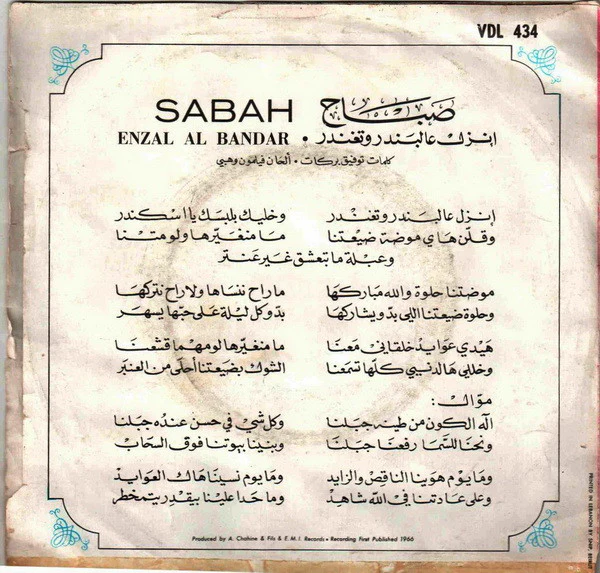 VDL 434
SABAH صباح
ENZAL AL BANDAR • انزل عالبندر وتغندر
كلمات توفيق بركات • ألحان فيلمون وهبي
انزل عالبندر وتغندر وخليك بلبسك يا اسكندر
وقلن هاي موضة ضيعتنا ما منغيرها ولو متنا
وعبلة ما بتعشق غير عنتر
موضتنا حلوة والله مباركها ما راح ننساها ولا راح نتركها
وحلوة ضيعتنا اللي بدو يشاركها بدو كل ليلة على حبها يسهر
هيدي عوايد خلقاني معنا ما منغيرها لو مهما قشعنا
وخللي هالدنيي كلها تسمعنا الشوك بضيعتنا أحلى من العنبر
موال :
اله الكون من طينه جبلنا وكل شي في حسن عنده جبلنا
ونحنا للسما رفعنا جبلنا وبنينا بيوتنا فوق السحاب
وما يوم هوينا الناقص والزايد وما يوم نسينا هاك العوايد
وعلى عادتنا في الله شاهد وما حدا علينا بيقدر يتمخطر
Produced by A. Chahine & Fils & E.M.I. Records • Recording First Published 1966
PRINTED IN LEBANON BY